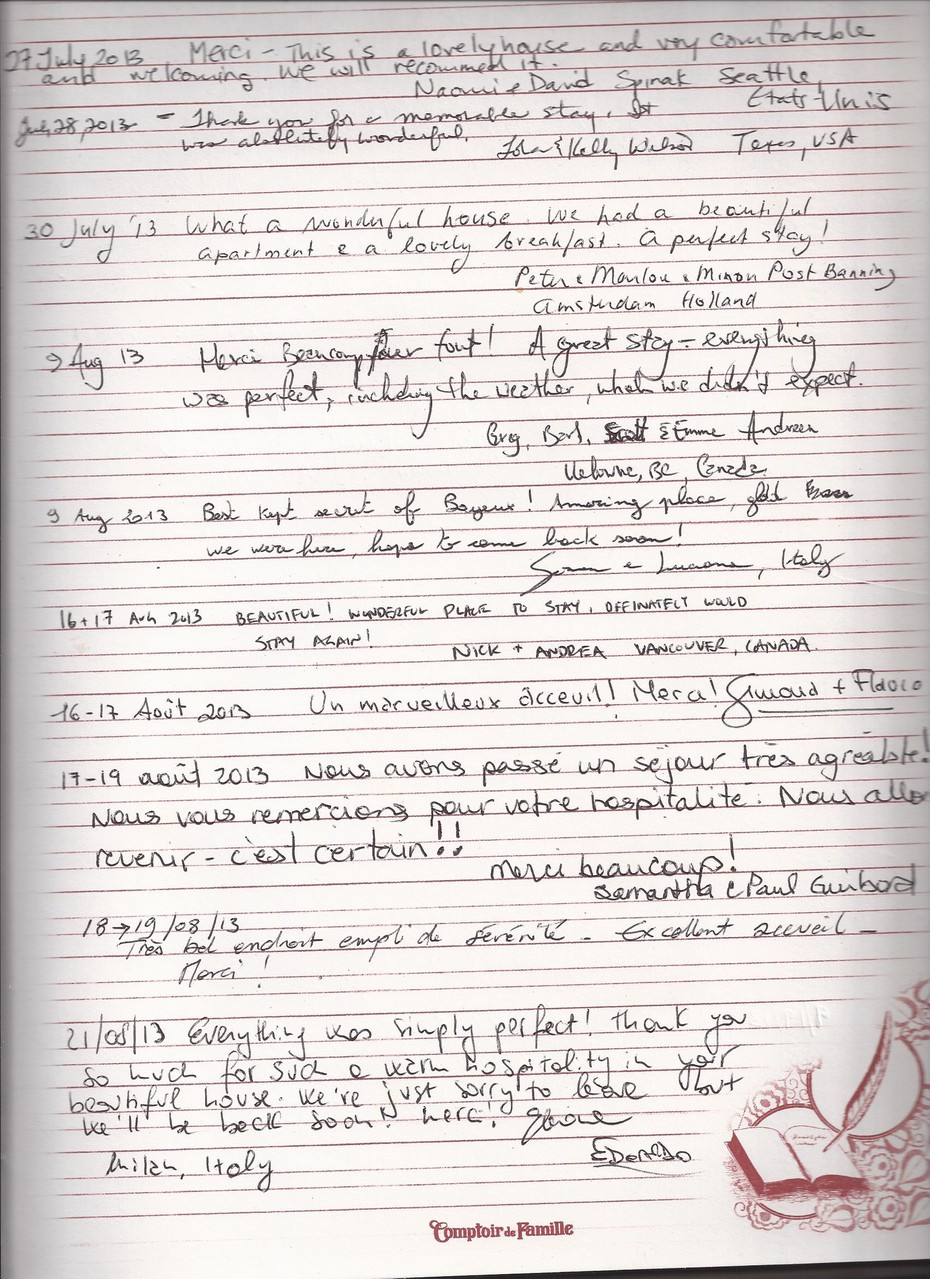 27 July 2013 Merci - This is a lovely house and very comfortable
and welcoming. We will recommed it.
Naomi & David Spinak Seattle,
États-Unis
July 28, 2013 - Thank you for a memorable stay. It
was absolutely wonderful.
& Kelly Wilson Texas, USA
30 July '13 What a wonderful house. We had a beautiful
apartment & a lovely breakfast. A perfect stay!
Peter & Marilou & Minon Post Banning
Amsterdam Holland
9 Aug 13 Merci Beaucoup Pour tout! A great stay - everything
was perfect, including the weather, what we didn't expect.
Greg, & Emma Andreen
Kelowna, BC, Canada
9 Aug 2013 Best kept secret of Bayeux! Amazing place, glad
we were here, hope to come back soon!
& Luciana, Italy
16+17 AUG 2013 BEAUTIFUL! WONDERFUL PLACE TO STAY, DEFFINATELY WOULD
STAY AGAIN!
NICK + ANDREA VANCOUVER, CANADA.
16-17 Août 2013 Un marveilleux acceuil! Merci! +
17-19 août 2013 Nous avons passé un séjour très agréable!
Nous vous remercions pour votre hospitalité. Nous allo
revenir - c'est certain!!
merci beaucoup!
Samantha & Paul Guibord
18→19/08/13
Très bel endroit empli de sérénité - Excellent accueil -
Merci!
21/08/13 Everything was simply perfect! Thank you
so much for such a warm hospitality in your
beautiful house. We're just sorry to leave but
we'll be back soon! Merci!
EDOARDO
Milan, Italy
Comptoir de Famille